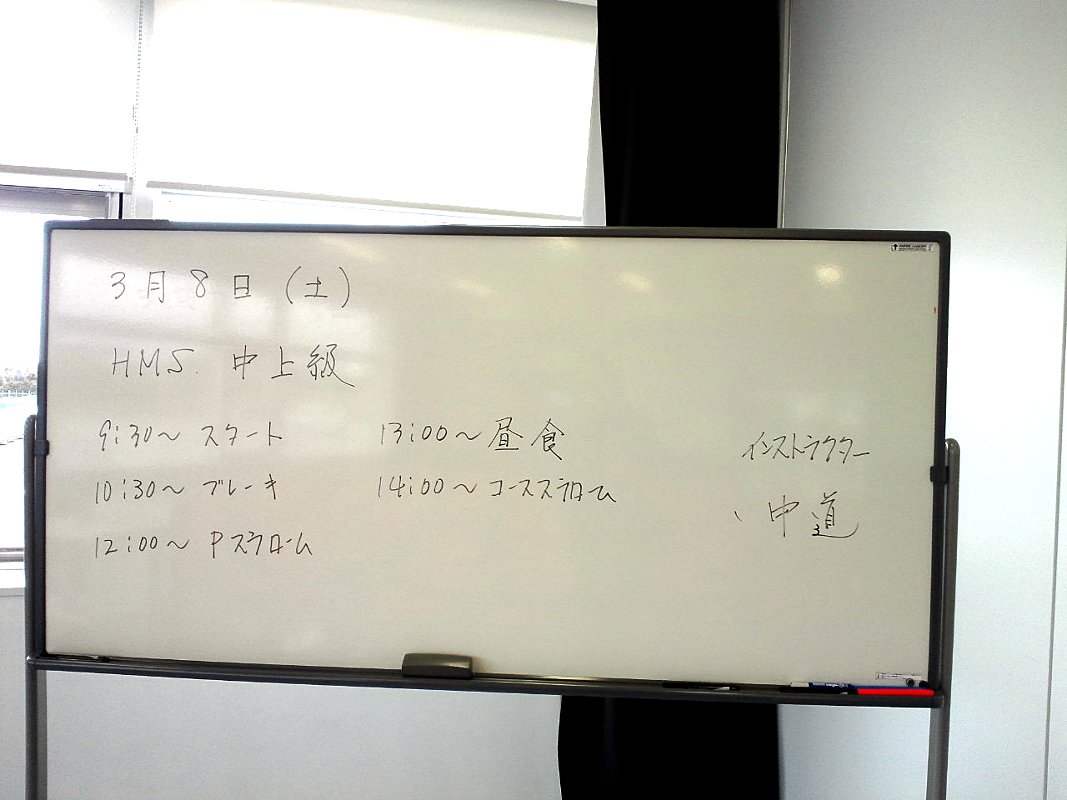 3月8日(土)
HMS. 中上級
9:30～ スタート
10:30～ ブレーキ
12:00～ Pスラローム
13:00～昼食
14:00～コーススラローム
インストラクター
、中道